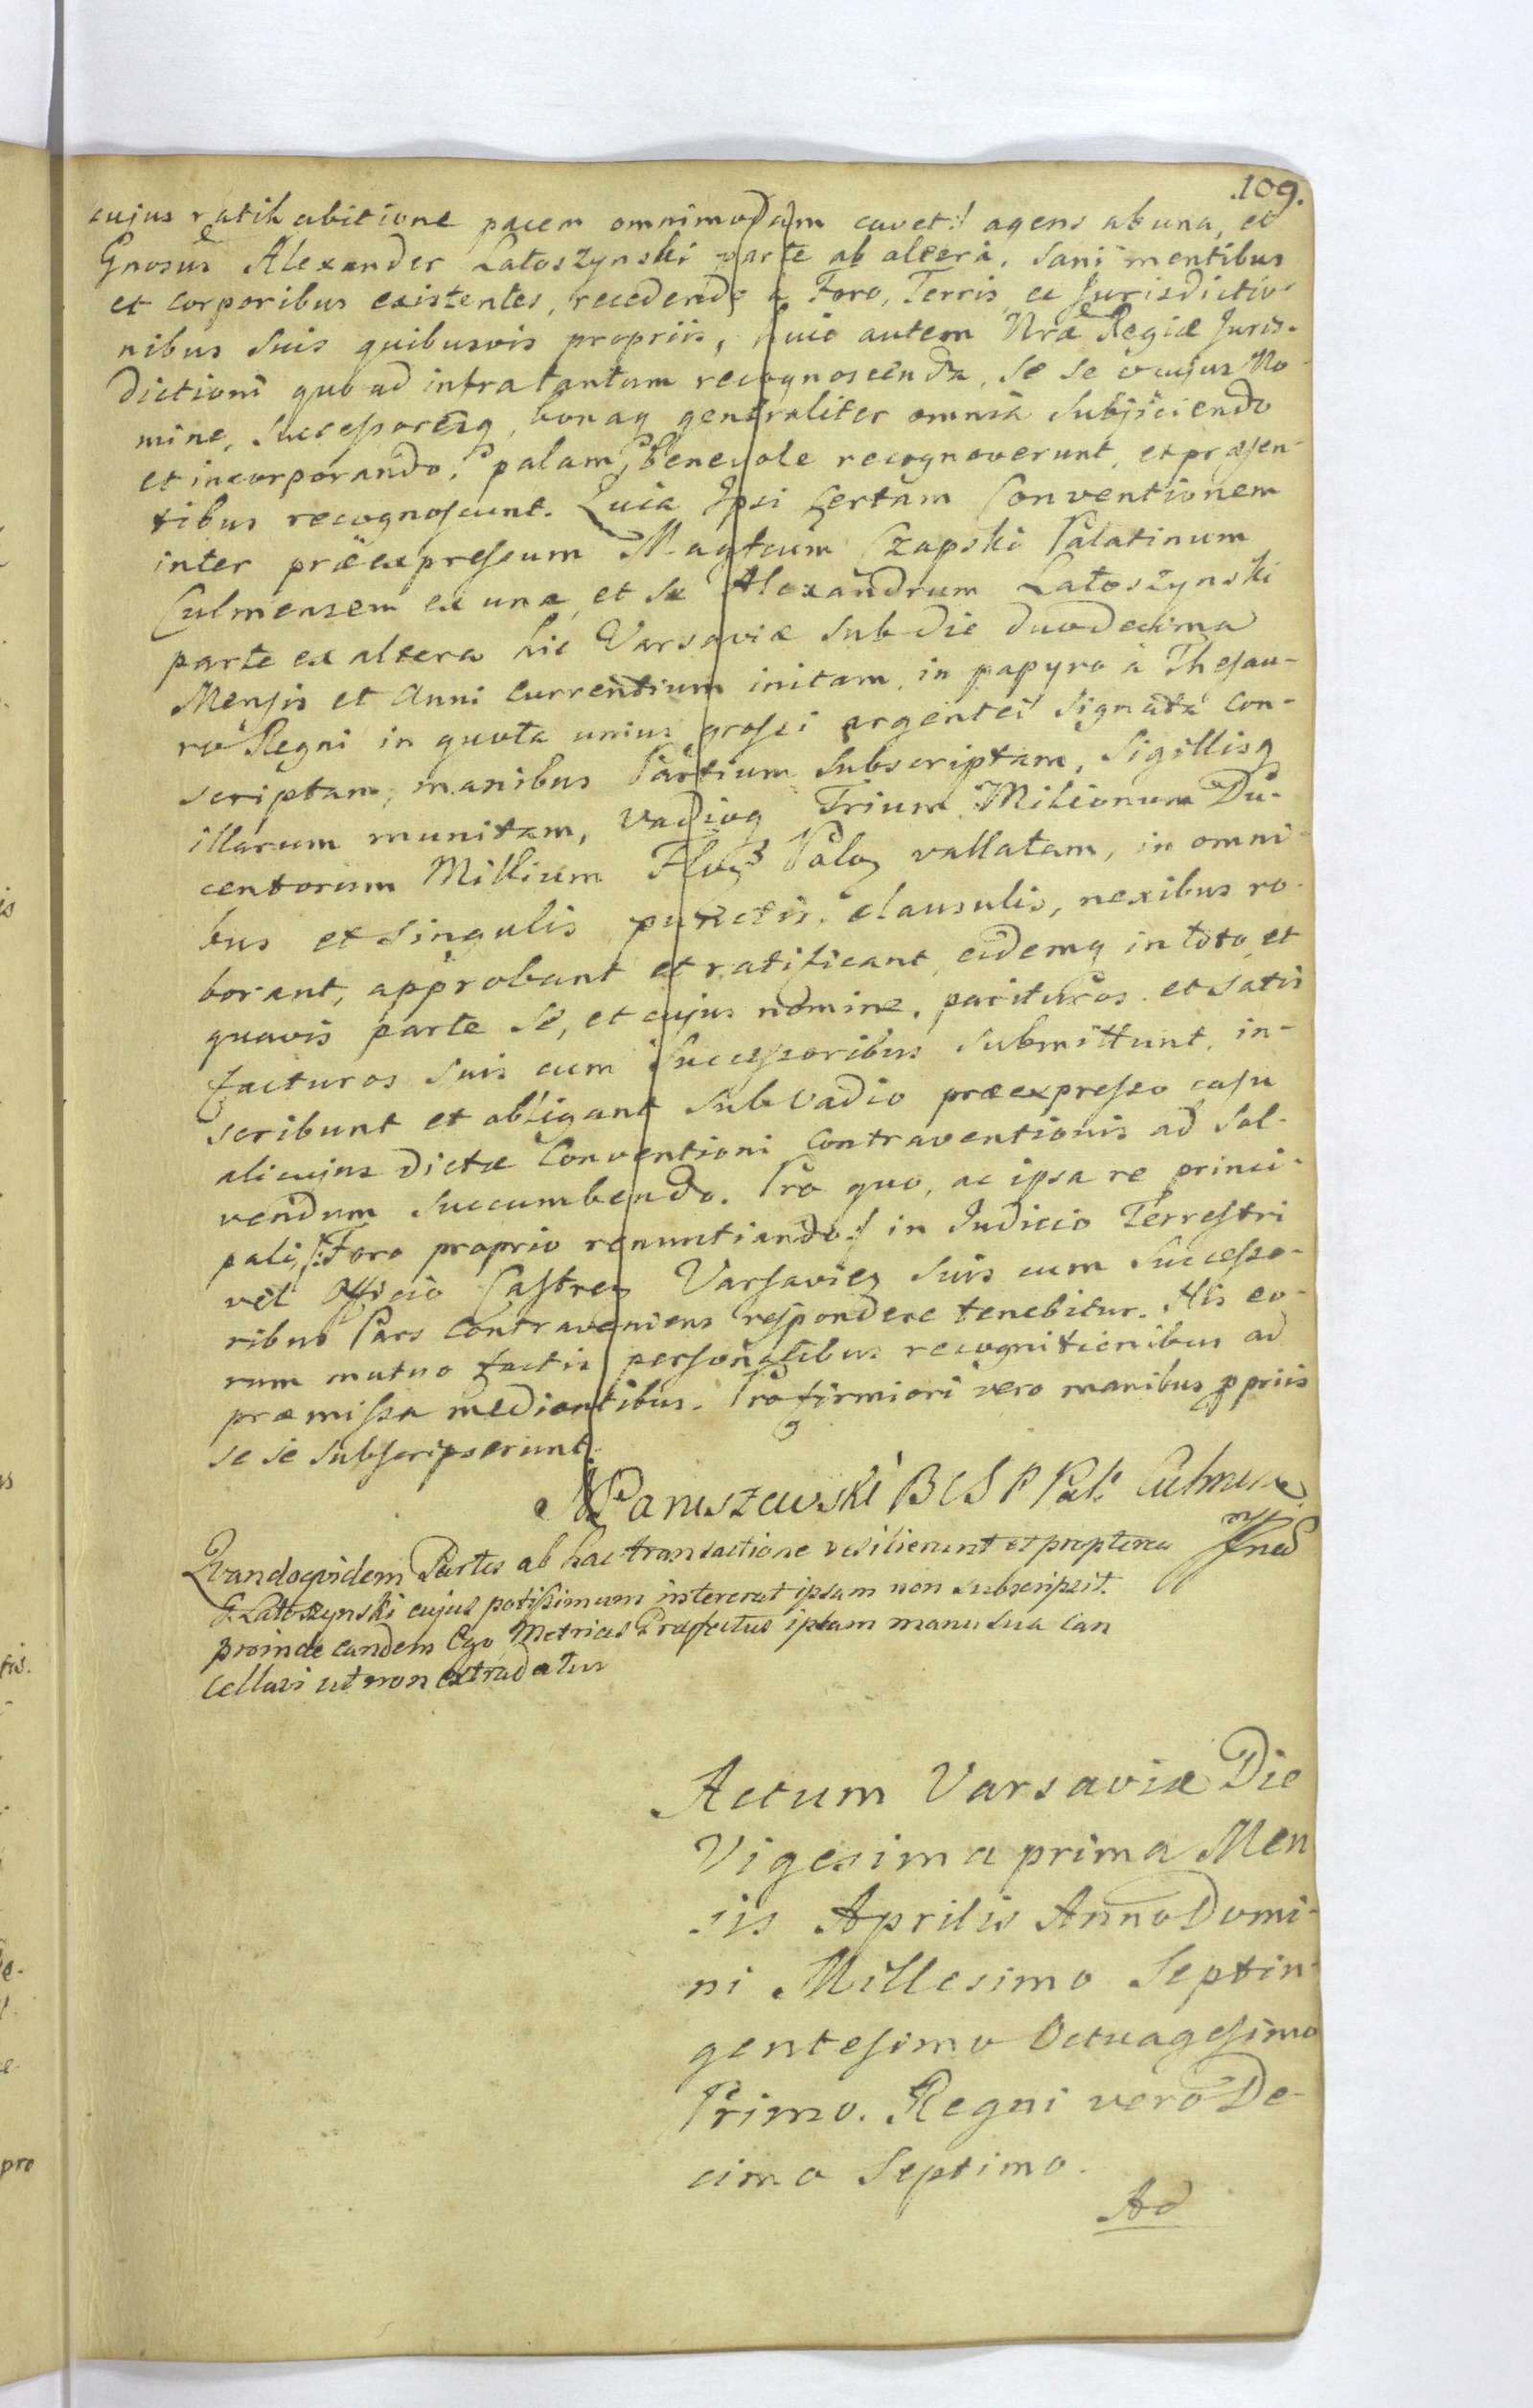 109.
cujus ratihabitione pacem omnimodam cavet:/ agens ab una, et
Gnosus Alexander Łatoszynski parte ab altera, sani mentibus
et corporibus existentes, recedendo à Foro, Terris, et Jurisdictio-
nibus suis quibusvis propriis, huic autem Nræ Regiæ Juris-
dictioni quo ad infra tantum recognoscenda, se se et cujus No-
mine, Successoresq, bonaq generaliter omnia subjiciendo
et incorporando, palam, benevole recognoverunt, et præsen-
tibus recognoscunt. Quia Ipsi Certam Conventionem
inter præexpressum Magfcum Czapski Palatinum
Culmensem ex una, et se Alexandrum Łatoszynski
parte ex altera hic Varsaviæ sub die duodecima
Mensis et Anni currentium initam, in papyro à Thesau-
ro Regni in quota unius grossi argentei signata con-
scriptam, manibus Partium subscriptam, Sigillisq
illarum munitam, vadioq Trium Milionum Du-
centorum Millium Flor Pol vallatam, in omni-
bus et singulis punctis, clausulis, nexibus ro-
borant, approbant et ratificant, eidemq in toto, et
quavis parte se, et cujus nomine, parituros et satis
facturos suis cum Successoribus submittunt, in-
scribunt et obligant sub vadio præexpresso casu
alicujus dictæ Conventioni Contraventionis ad sol-
vendum succumbendo. Pro quo, ac ipsa re princi-
pali /:Foro proprio renuntiando:/ in Judicio Terrestri
vel Officio Castren Varsavien suis cum Successo-
ribus Pars Contraveniens respondere tenebitur. His eo-
rum mutuo factis personalibus recognitionibus ad
præmissa mediantibus. Pro firmiori vero manibus ppriis
se se subscripserunt.
Paruszewski B C S P Pat: Culmen
mp
Quandoquidem Partes ab hac transactione resilierunt et propterea
G. Łatoszynski cujus potissimum intererat ipsam non subscripsit.
proinde eandem Ego Metrices Præfectus ipsam manu sua can
cellavi ut non extradatur
Actum Varsaviæ Die
Vigesima prima Men
sis Aprilis Anno Domi-
ni Millesimo Septin-
gentesimo Octuagesimo
Primo. Regni vero De-
cimo Septimo.
Ad